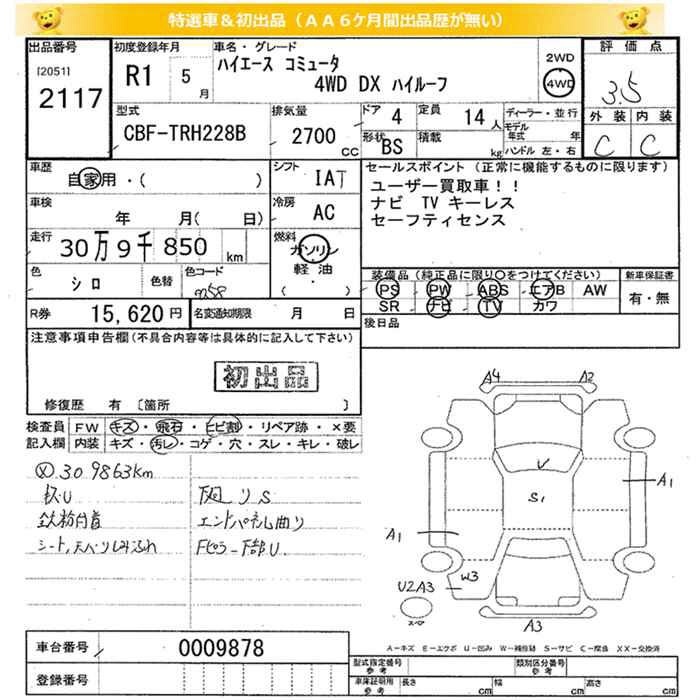 特選車＆初出品（ＡＡ６ケ月間出品歴が無い）
出品番号
[2051]
2117
初度登録年月
R1 5
月
車名・グレード
ハイエース コミュータ
4WD DX ハイルーフ
2WD
4WD
評価点
3.5
外装 内装
C C
型式
CBF-TRH228B
排気量
2700
CC
ドア 4
定員 14 人
形状 BS
積載
kg
ディーラー・並行
モデル年式 年
ハンドル 左・右
車歴
自家用・( )
シフト IAT
車検
年 月( 日)
冷房 AC
走行
30万9千850 km
燃料
ガソリン
軽油・
( )
色
シロ
色替
色コード
058
R券 15,620円
名変通知期限 月 日
セールスポイント（正常に機能するものに限ります）
ユーザー買取車！！
ナビ TV キーレス
セーフティセンス
装備品（純正品に限り〇をつけてください）
PS PW ABS エアB AW
SR ナビ TV カワ
新車保証書
有・無
後日品
注意事項申告欄(不具合内容等は具体的に記入して下さい)
初出品
修復歴 有 〔箇所 〕
検査員 FW キズ・飛石・ヒビ割・リペア跡・×要
記入欄 内装 キズ・汚レ・コゲ・穴・スレ・キレ・破レ
309863km
鉄粉付着
下廻りS
エンドパネル曲り
Fピラー下部U
A4 A2
U
S1
A1
A1
W3
U2A3
スペア
A3
A-キズ E-エクボ U-凹み W-補修跡 S-サビ C-腐食 XX-交換済
車台番号 0009878
登録番号
型式指定番号
参考
類別区分番号
参考
車庫証明用
参考
長さ cm 幅 cm 高さ cm